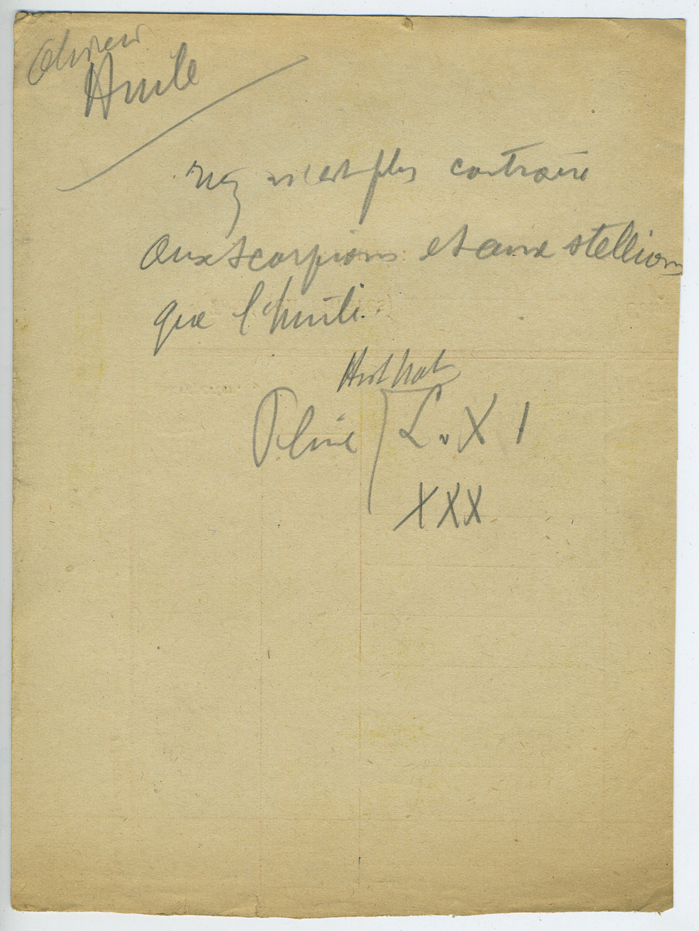 Olivier
Huile
rien n'est plus contraire
aux scorpions et aux stellions
que l'huile.
Hist Nat
Pline L. XI
XXX